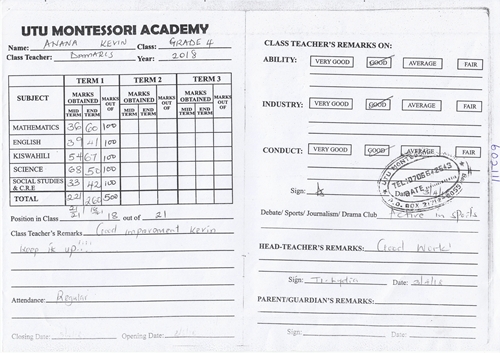 UTU MONTESSORI ACADEMY
Name: ANANA KEVIN Class: GRADE 4
Class Teacher: DAMARIS Year: 2018
SUBJECT TERM 1 TERM 2 TERM 3
MARKS OBTAINED MARKS OUT OF MARKS OBTAINED MARKS OUT OF MARKS OBTAINED MARKS OUT OF
MID TERM END TERM MID TERM END TERM MID TERM END TERM
MATHEMATICS 36 60 100
ENGLISH 39 41 100
KISWAHILI 54 67 100
SCIENCE 68 50 100
SOCIAL STUDIES & C.R.E 33 42 100
TOTAL 260 500
Position in Class 18 out of 21
Class Teacher's Remarks Good improvement Kevin
keep it up!!!
Attendance: Regular
Closing Date: Opening Date:
CLASS TEACHER'S REMARKS ON:
ABILITY: VERY GOOD GOOD AVERAGE FAIR
INDUSTRY: VERY GOOD GOOD AVERAGE FAIR
CONDUCT: VERY GOOD GOOD AVERAGE FAIR
UTU MONTESSORI
DATE
P.O. BOX
Sign:
Debate/ Sports/ Journalism/ Drama Club Active in sports
HEAD-TEACHER'S REMARKS: Good Work!
Sign: Date:
PARENT/GUARDIAN'S REMARKS:
Sign: Date: